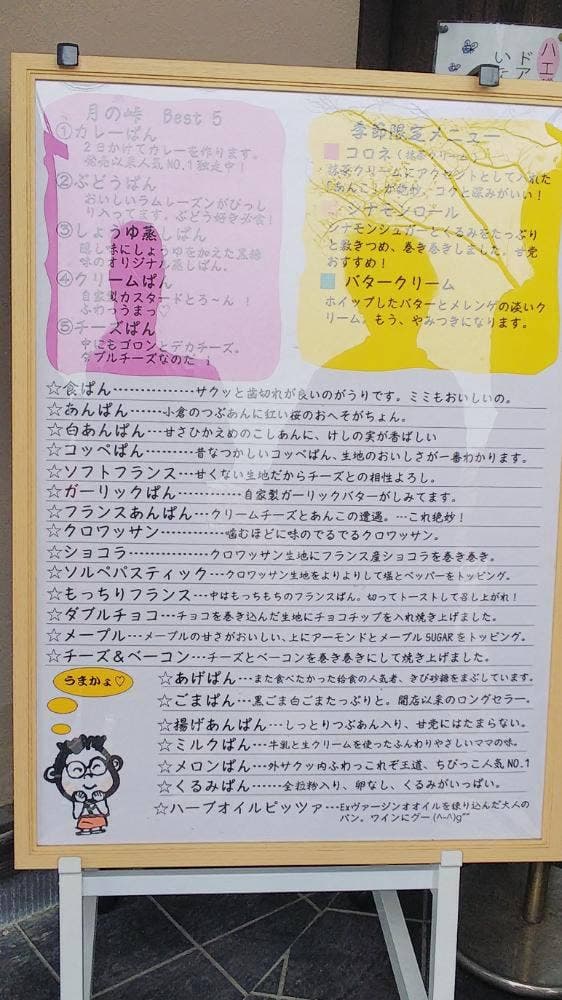 ハエ
ドア
いを
月の峠 Best 5
①カレーぱん
2日かけてカレーを作ります。
発売以来人気NO.1独走中！
②ぶどうぱん
おいしいラムレーズンがびっし
り入ってます。ぶどう好き必食！
③しょうゆ蒸しぱん
隠し味にしょうゆを加えた黒糖
味のオリジナル蒸しぱん。
④クリームぱん
自家製カスタードとろ～ん！
ふわっうまっ♡
⑤チーズぱん
中にもゴロンとデカチーズ。
ダブルチーズなのだ！
季節限定メニュー
コロネ（抹茶クリーム）
抹茶クリームにアクセントとして入れた
「あんこ」が絶妙。コクと深みがいい！
シナモンロール
シナモンシュガーとくるみをたっぷり
と敷きつめ、巻き巻きしました。甘党
おすすめ！
バタークリーム
ホイップしたバターとメレンゲの淡いク
リーム。もう、やみつきになります。
☆食ぱん……………サクッと歯切れが良いのがうりです。ミミもおいしいの。
☆あんぱん……小倉のつぶあんに紅い桜のおへそがちょん。
☆白あんぱん……甘さひかえめのこしあんに、けしの実が香ばしい
☆コッペぱん…………昔なつかしいコッペぱん、生地のおいしさが一番わかります。
☆ソフトフランス…甘くない生地だからチーズとの相性よろし。
☆ガーリックぱん…………自家製ガーリックバターがしみてます。
☆フランスあんぱん…クリームチーズとあんこの遭遇。…これ絶妙！
☆クロワッサン…………噛むほどに味のでるでるクロワッサン。
☆ショコラ……………クロワッサン生地にフランス産ショコラを巻き巻き。
☆ソルペパスティック…クロワッサン生地をよりよりして塩とペッパーをトッピング。
☆もっちりフランス…中はもっちもちのフランスぱん。切ってトーストして召し上がれ！
☆ダブルチョコ…チョコを巻き込んだ生地にチョコチップを入れ焼き上げました。
☆メープル…メープルの甘さがおいしい、上にアーモンドとメープルSUGARをトッピング。
☆チーズ＆ベーコン…チーズとベーコンを巻き巻きにして焼き上げました。
うまかぁ♡
☆あげぱん…また食べたかった給食の人気者、きび砂糖をまぶしています。
☆ごまぱん…黒ごま白ごまたっぷりと。開店以来のロングセラー。
☆揚げあんぱん…しっとりつぶあん入り、甘党にはたまらない。
☆ミルクぱん…牛乳と生クリームを使ったふんわりやさしいママの味。
☆メロンぱん…外サクッ内ふわっこれぞ王道、ちびっこ人気NO.1
☆くるみぱん……全粒粉入り、卵なし、くるみがいっぱい。
☆ハーブオイルピッツァ…Exヴァージンオオイルを練り込んだ大人の
パン。ワインにグー(^-^)g""